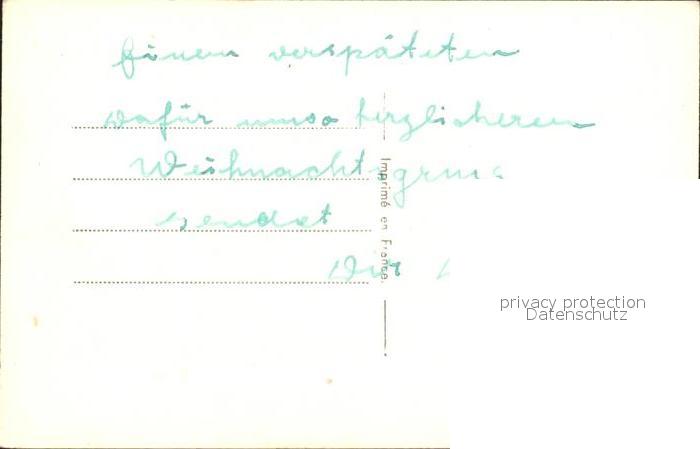 Einen verspäteten
dafür umso herzlicheren
Weihnachtsgruss
sendet
Dir
Imprimé en France.
privacy protection
Datenschutz